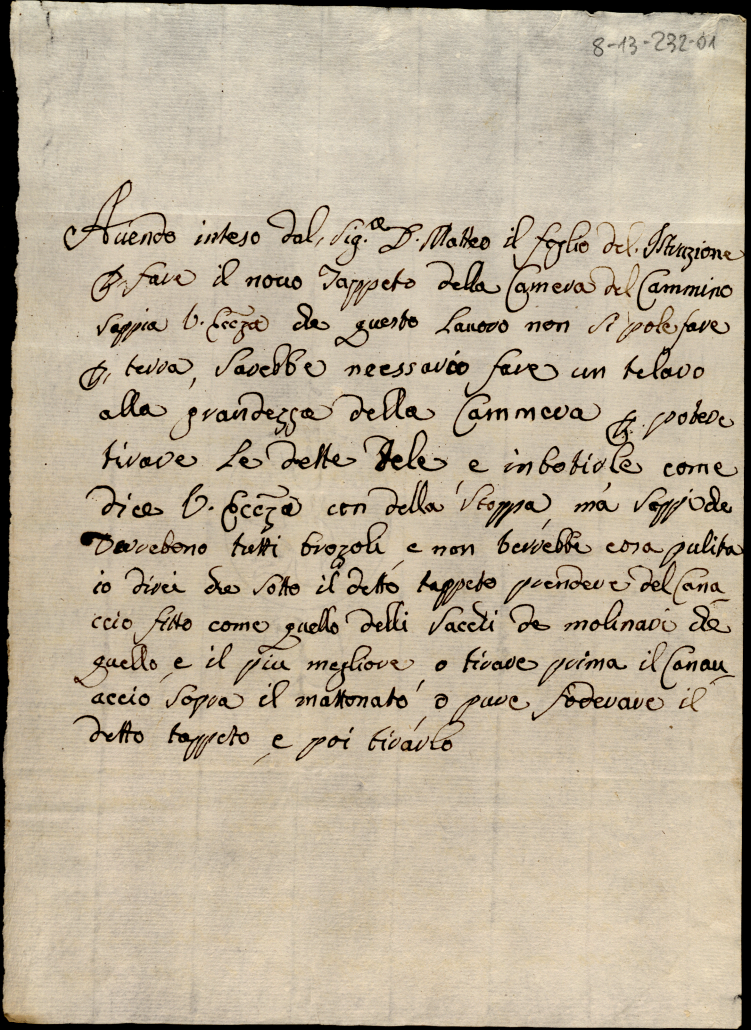 8-13-232-01
Avendo inteso dal, Sig.re D. Matteo il foglio del. Istruzione
P. fare il novo Tappeto della Camera del Cammino
Sappia V. Eccza che questo Lavoro non Si pole fare
P. terra, Sarebbe necessario fare un telaro
alla grandezza della Cammera P. potere
tirare Le dette Tele e inbotirle come
dice V. Eccza con della Stoppa, ma Sappi che
Verebono tutti brozoli, e non verrebbe cosa pulita
io direi che Sotto il detto tappeto prendere del Cana-
ccio fitto come quello delli Sacchi de molinari che
quello e il più megliore, o tirare prima il Canau-
accio Sopra il mattonato, o pure foderare il
detto tappeto e poi tirarlo